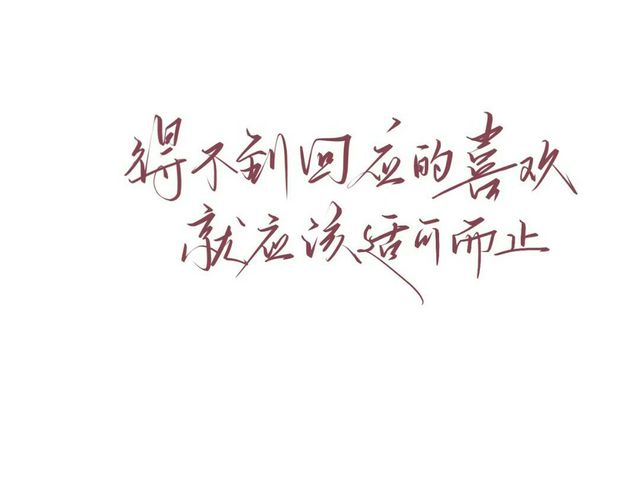 得不到回应的喜欢
就应该适可而止